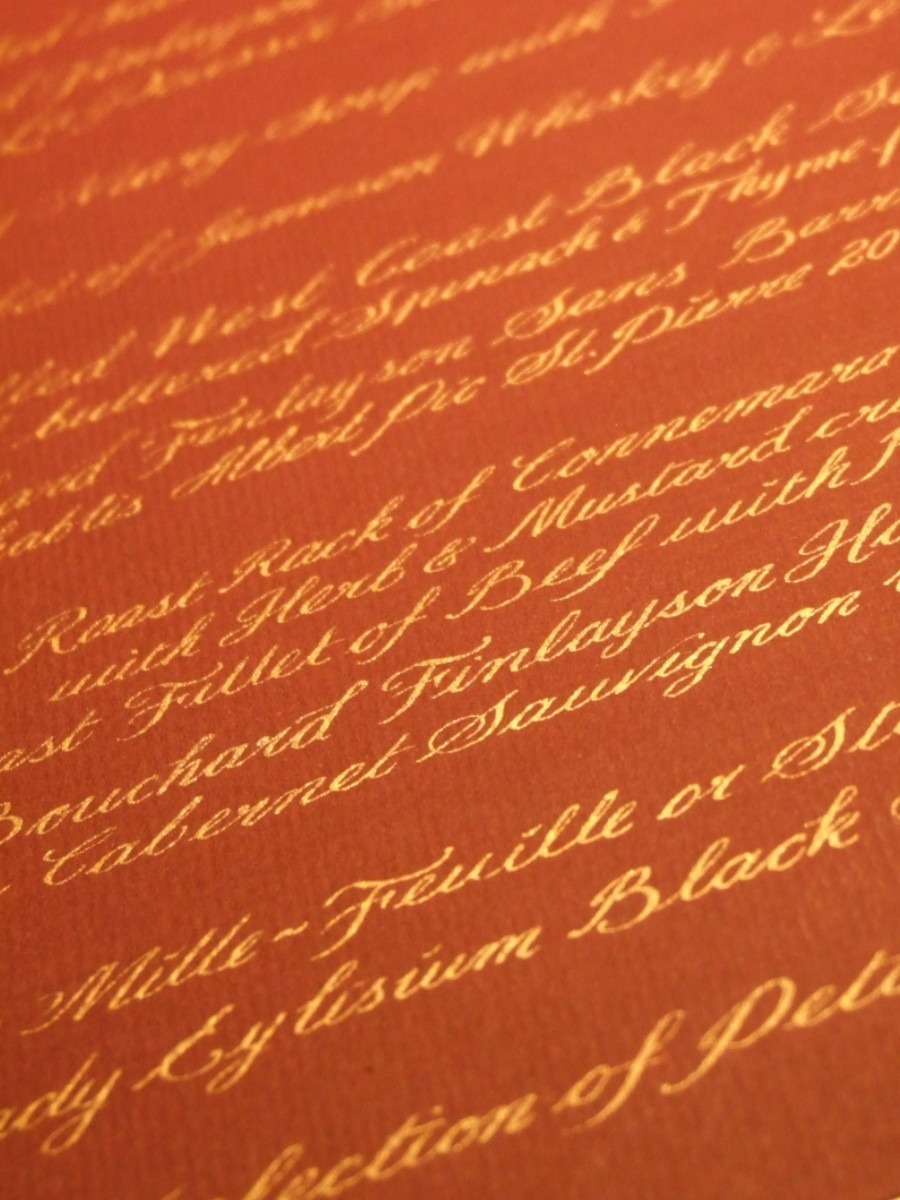 Finlayson
Soup with
of Jameson Whiskey &
West Coast Black
buttered Spinach & Thyme
Finlayson Sans Barri
ablis Albert Pic St. Pierre 20
Roast Rack of Connemara
with Herb & Mustard cru
ast Fillet of Beef with
Bouchard Finlayson Ha
Cabernet Sauvignon
Mille-Feuille or St
ady Eylisium Black
lection of Peti